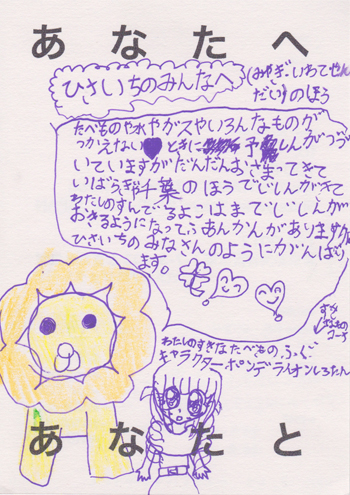 あなたへ
ひさいちのみんなへ
(みやぎ・いわてせん
だい)のほう
たべものやガスやいろんなものが
つかえない♥ときに 予しんがつづ
いていますがだんだんおさまってきて
いばらぎ千葉のほうでじしんがきて
わたしのすんでるよこはまでじしんが
おきるようになってふあんかんがありますが
ひさいちのみなさんのようにがんばり
ます。
すきなもの
コーナー
わたしのすきなたべもの、ふぐ
キャラクターポンデライオンしろたん
あなたと